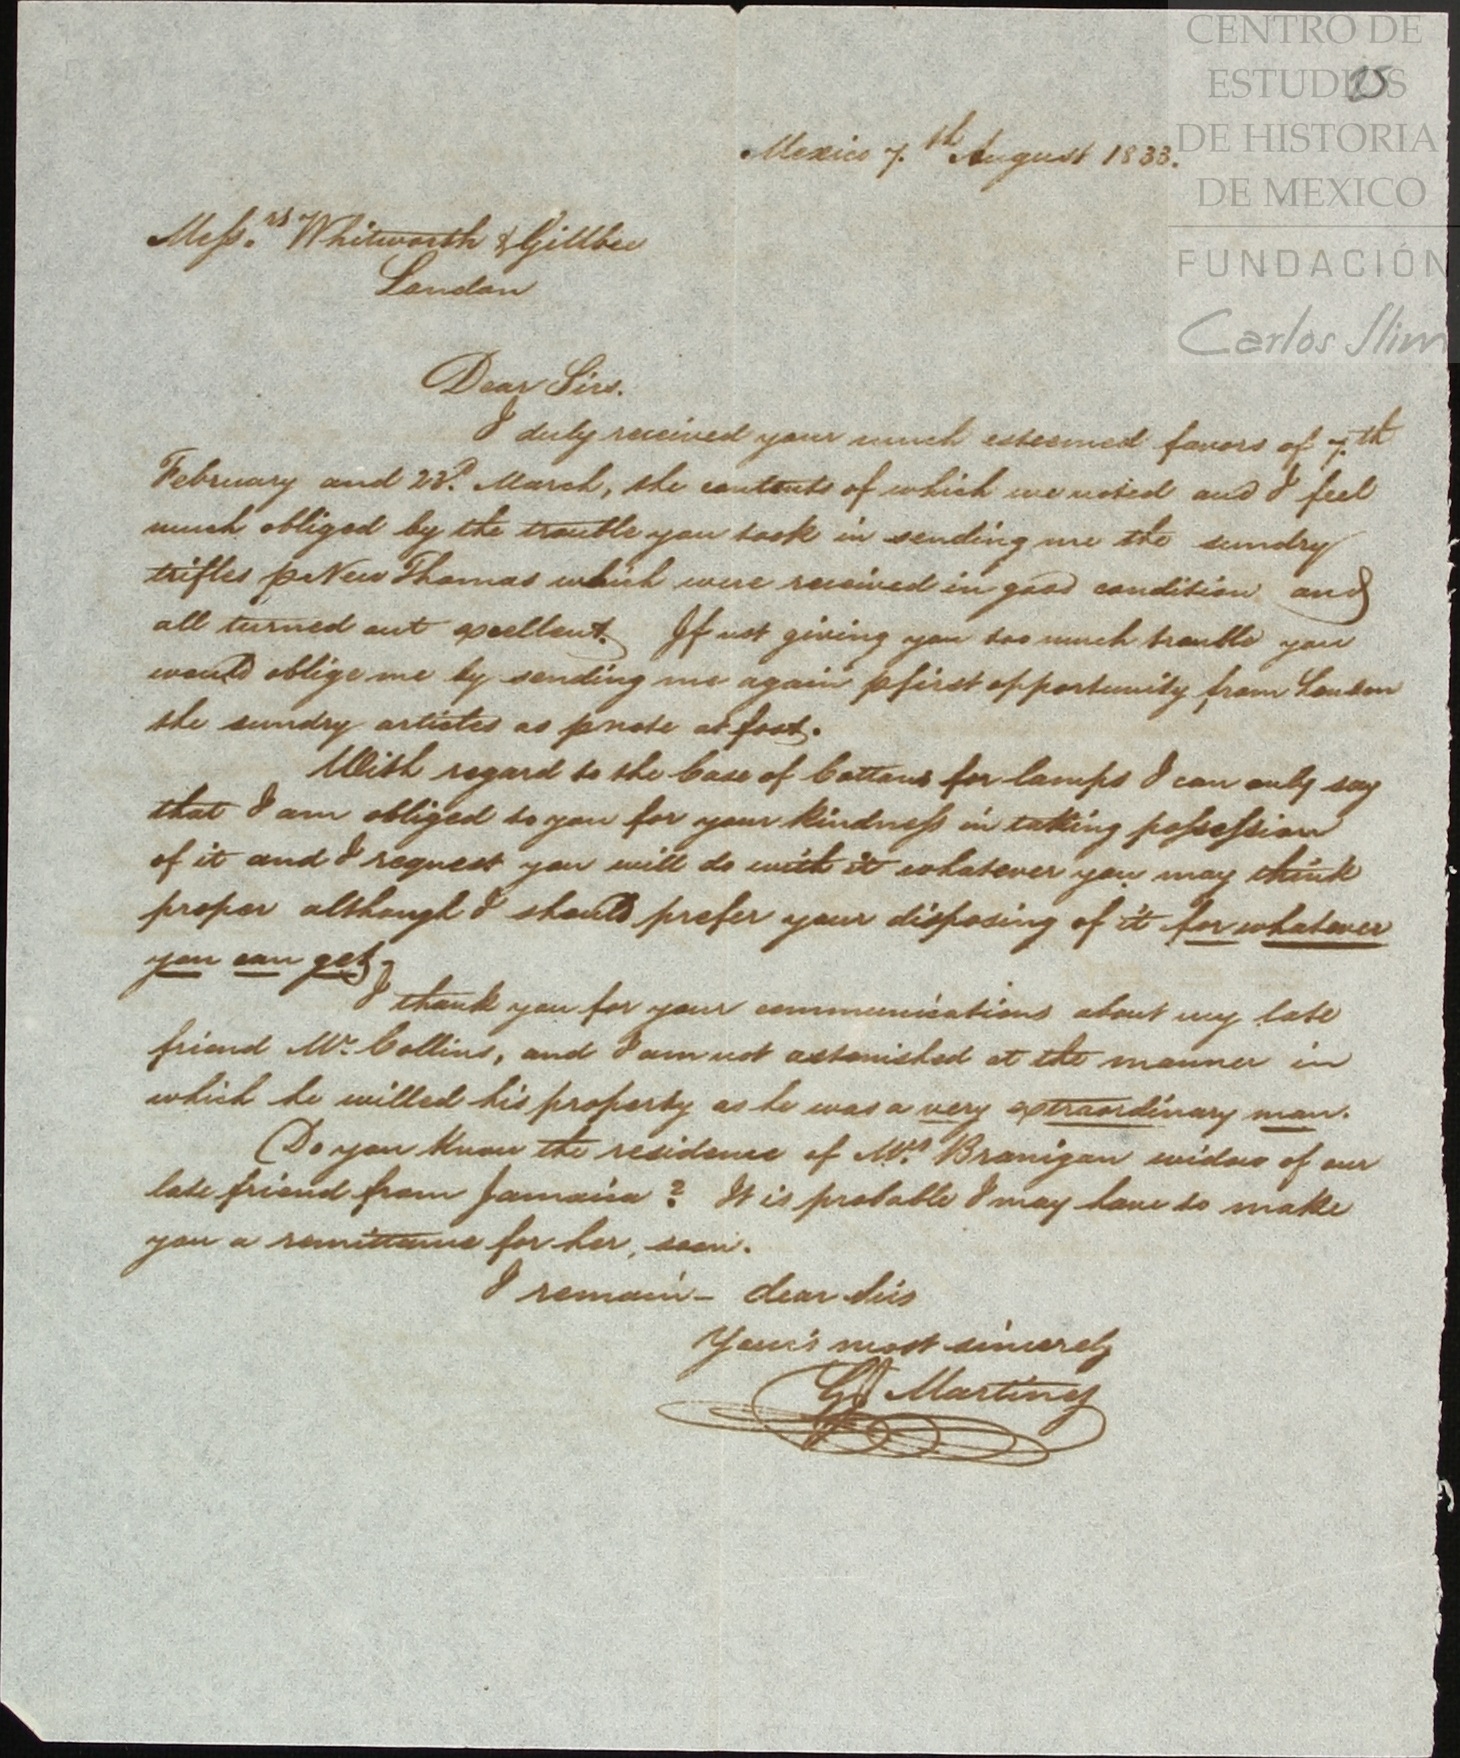 CENTRO DE
ESTUDIOS
DE HISTORIA
DE MEXICO
FUNDACIÓN
Carlos Slim
25
Mexico 7.th August 1833.
Mess.rs Whitworth & Gillbee
London
Dear Sirs.
I duly received your much esteemed favors of 7.th
February and 23.d March, the contents of which we noted and I feel
much obliged by the trouble you took in sending me the sundry
trifles p New Thomas which were received in good condition and
all turned out excellent. If not giving you too much trouble you
would oblige me by sending me again p first opportunity from London
the sundry articles as p note at foot.
With regard to the Case of Cottons for lamps I can only say
that I am obliged to you for your kindness in taking possession
of it and I request you will do with it whatever you may think
proper although I should prefer your disposing of it for whatever
you can get.
I thank you for your communications about my late
friend Mr. Collins, and I am not astonished at the manner in
which he willed his property as he was a very extraordinary man.
Do you know the residence of Mrs. Branigan widow of our
late friend from Jamaica? It is probable I may have to make
you a remittance for her, soon.
I remain - dear Sirs
Your's most sincerely
GJ Martinez